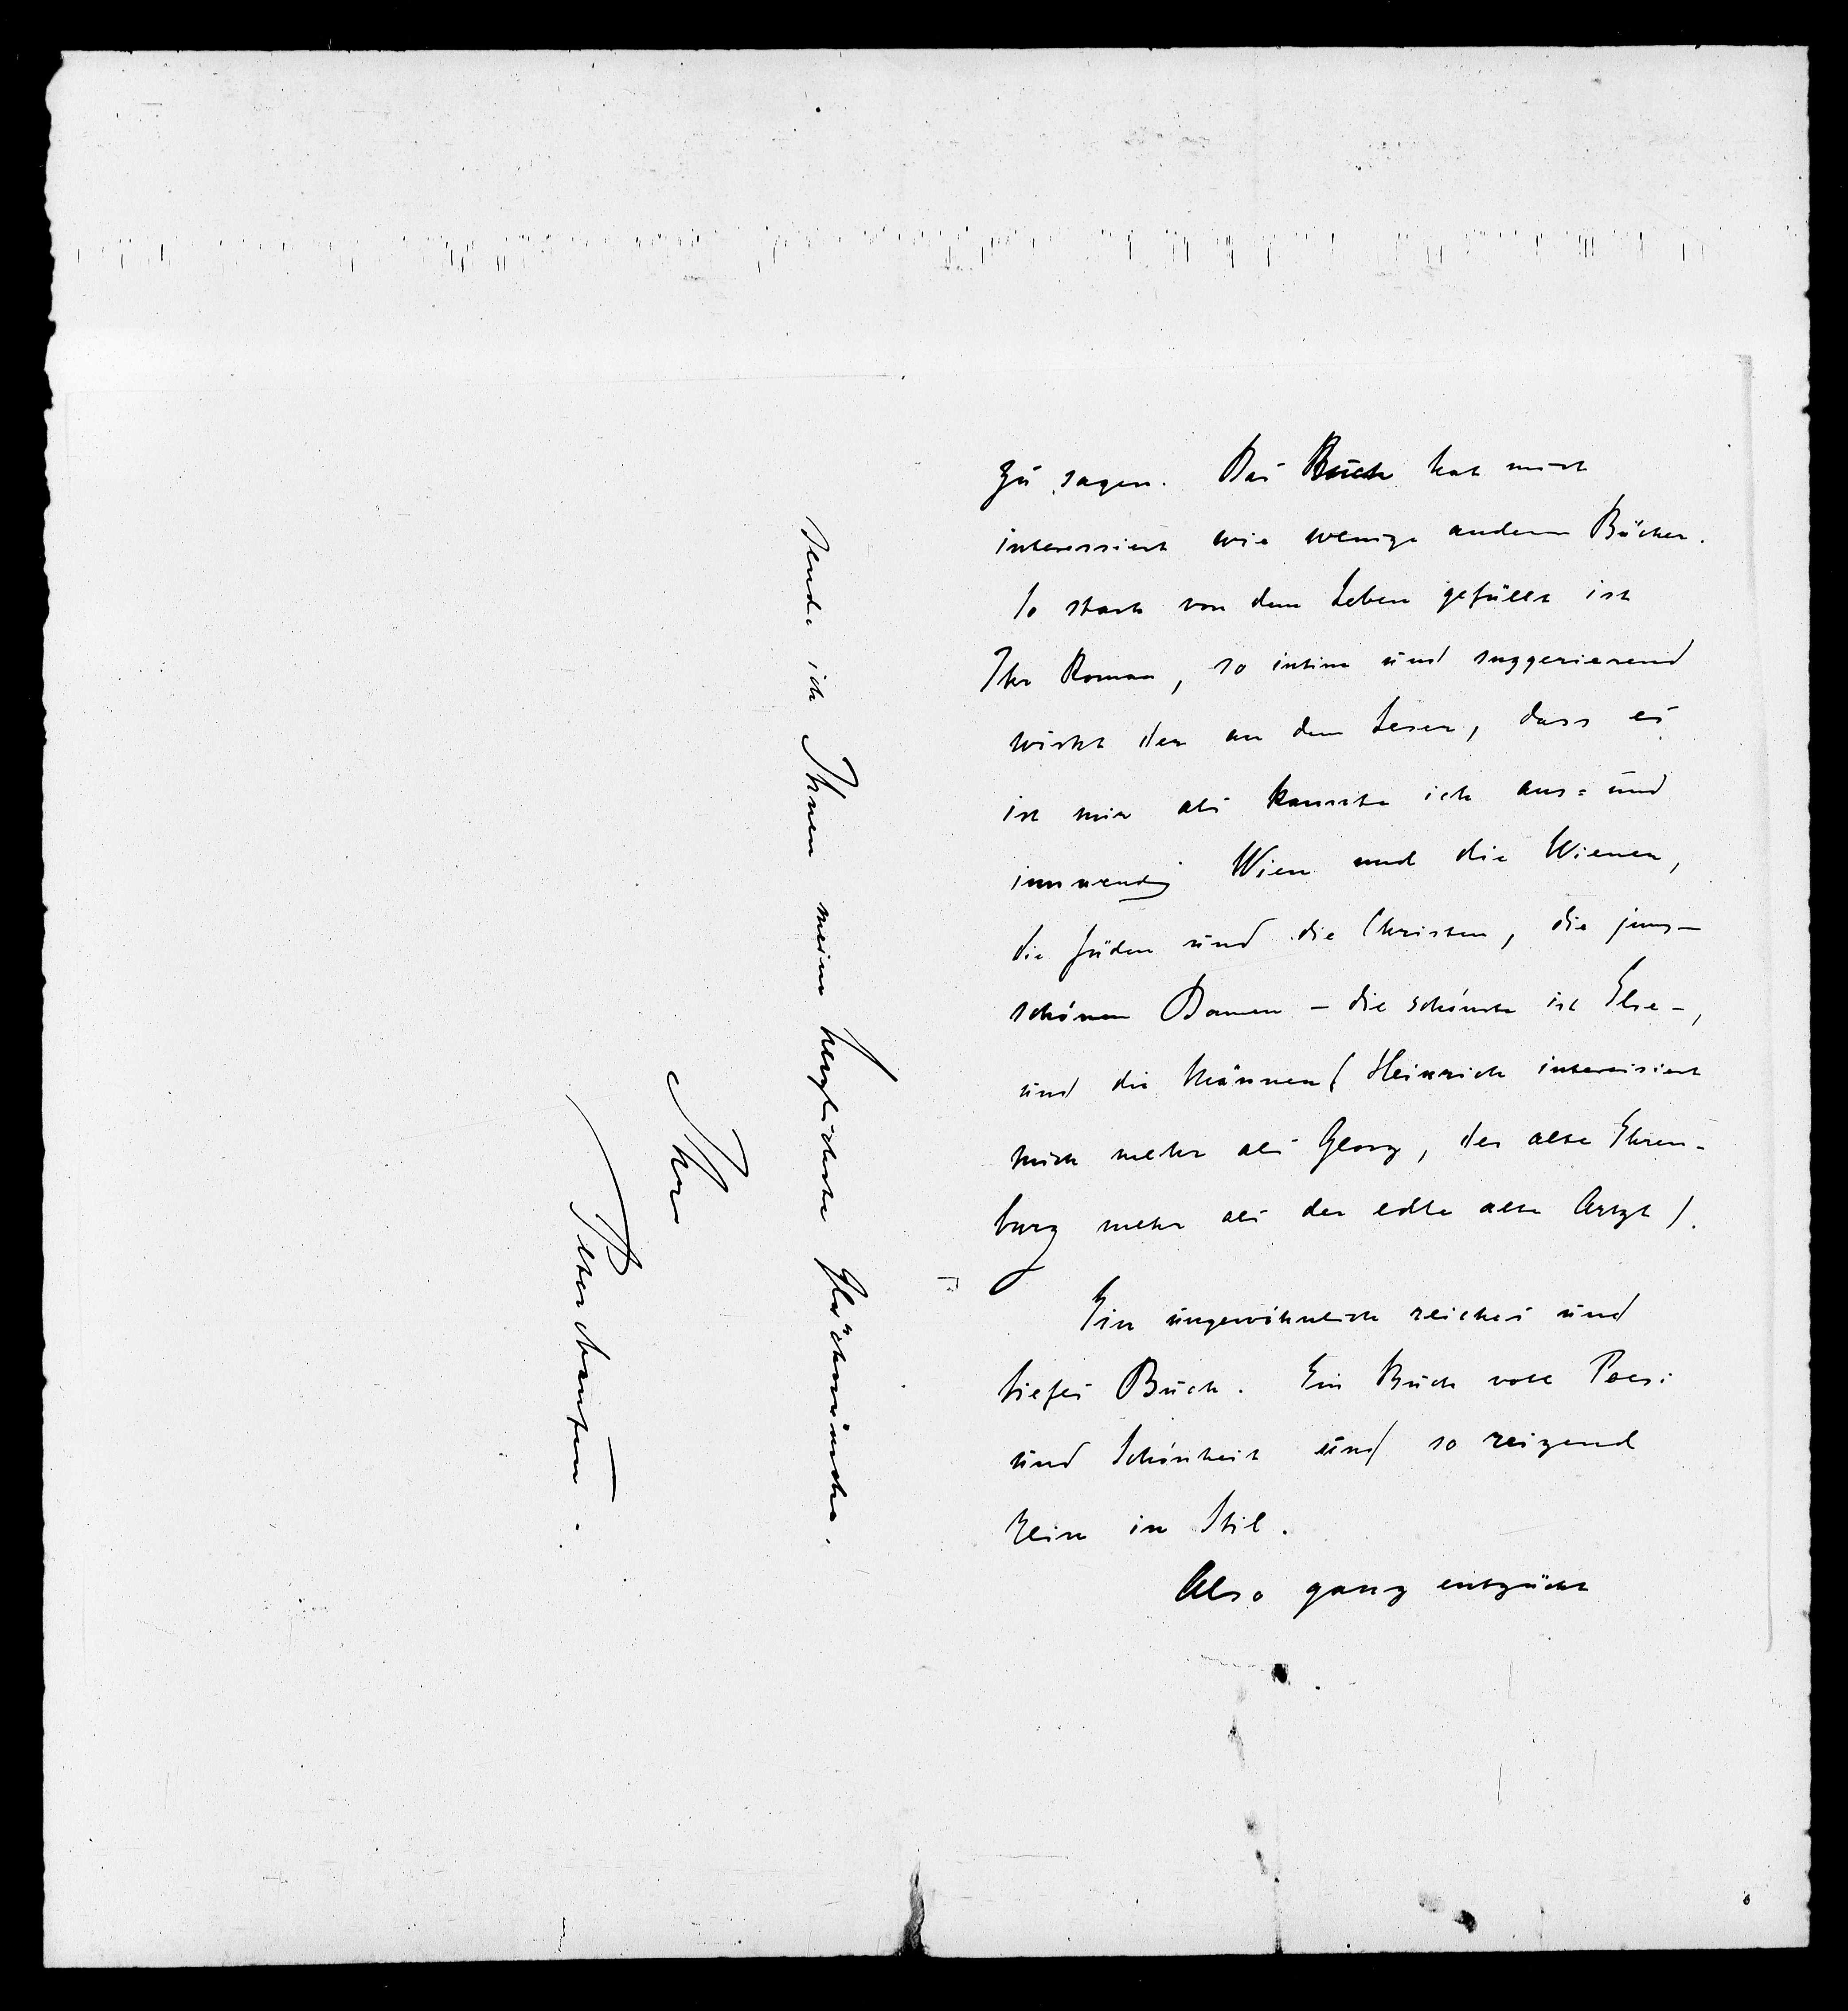 zu sagen. Das Buch hat mich
interessiert wie wenige andere Bücher.
So stark von dem Leben gefüllt ist
Ihr Roman, so intim und suggerierend
wirkt der an dem Leser, dass es
ist mir als kannte ich aus= und
innwendig Wien und die Wiener,
die Juden und die Christen, die
schönen Damen – die schönste ist Else –,
und die Männer (Heinrich interessiert
mich mehr als Georg, der alte Ehren-
burg mehr als der edle alte Artzt).
Ein ungewöhnlich reiches und
tiefes Buch. Ein Buch voll Poesi
und Schönheit und so reizend
rein in Stil.
Also ganz entzückt
sende ich Ihnen meine herzlichste Glückwünsche.
Ihr
Peter Nansen.